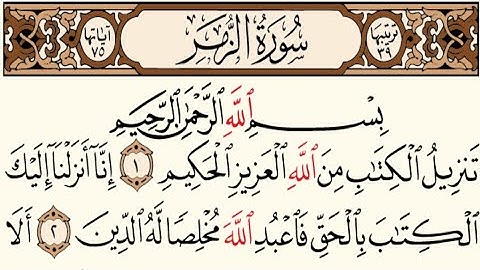 ترتيبها ٣٩ سُورَةُ الزُّمَرِ آياتها ٧٥
بِسْمِ ٱللَّهِ ٱلرَّحْمَٰنِ ٱلرَّحِيمِ
تَنزِيلُ ٱلْكِتَٰبِ مِنَ ٱللَّهِ ٱلْعَزِيزِ ٱلْحَكِيمِ ١ إِنَّآ أَنزَلْنَآ إِلَيْكَ
ٱلْكِتَٰبَ بِٱلْحَقِّ فَٱعْبُدِ ٱللَّهَ مُخْلِصًا لَّهُ ٱلدِّينَ ٢ أَلَا